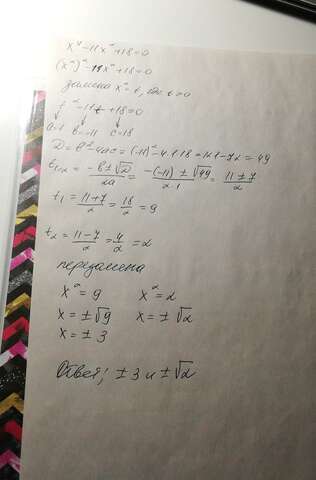 x⁴-11x²+18=0
(x²)²-11x²+18=0
Замена x²=t, где t≥0
t²-11t+18=0
a=1 b=-11 c=18
D=b²-4ac=(-11)²-4·18=121-72=49
t₁,₂=(-b±√D)/2a=(-(-11)±√49)/2·1=(11±7)/2
t₁=(11+7)/2=18/2=9
t₂=(11-7)/2=4/2=2
перезамена
x²=9 x²=2
x=±√9 x=±√2
x=±3
Ответ: ±3 и ±√2